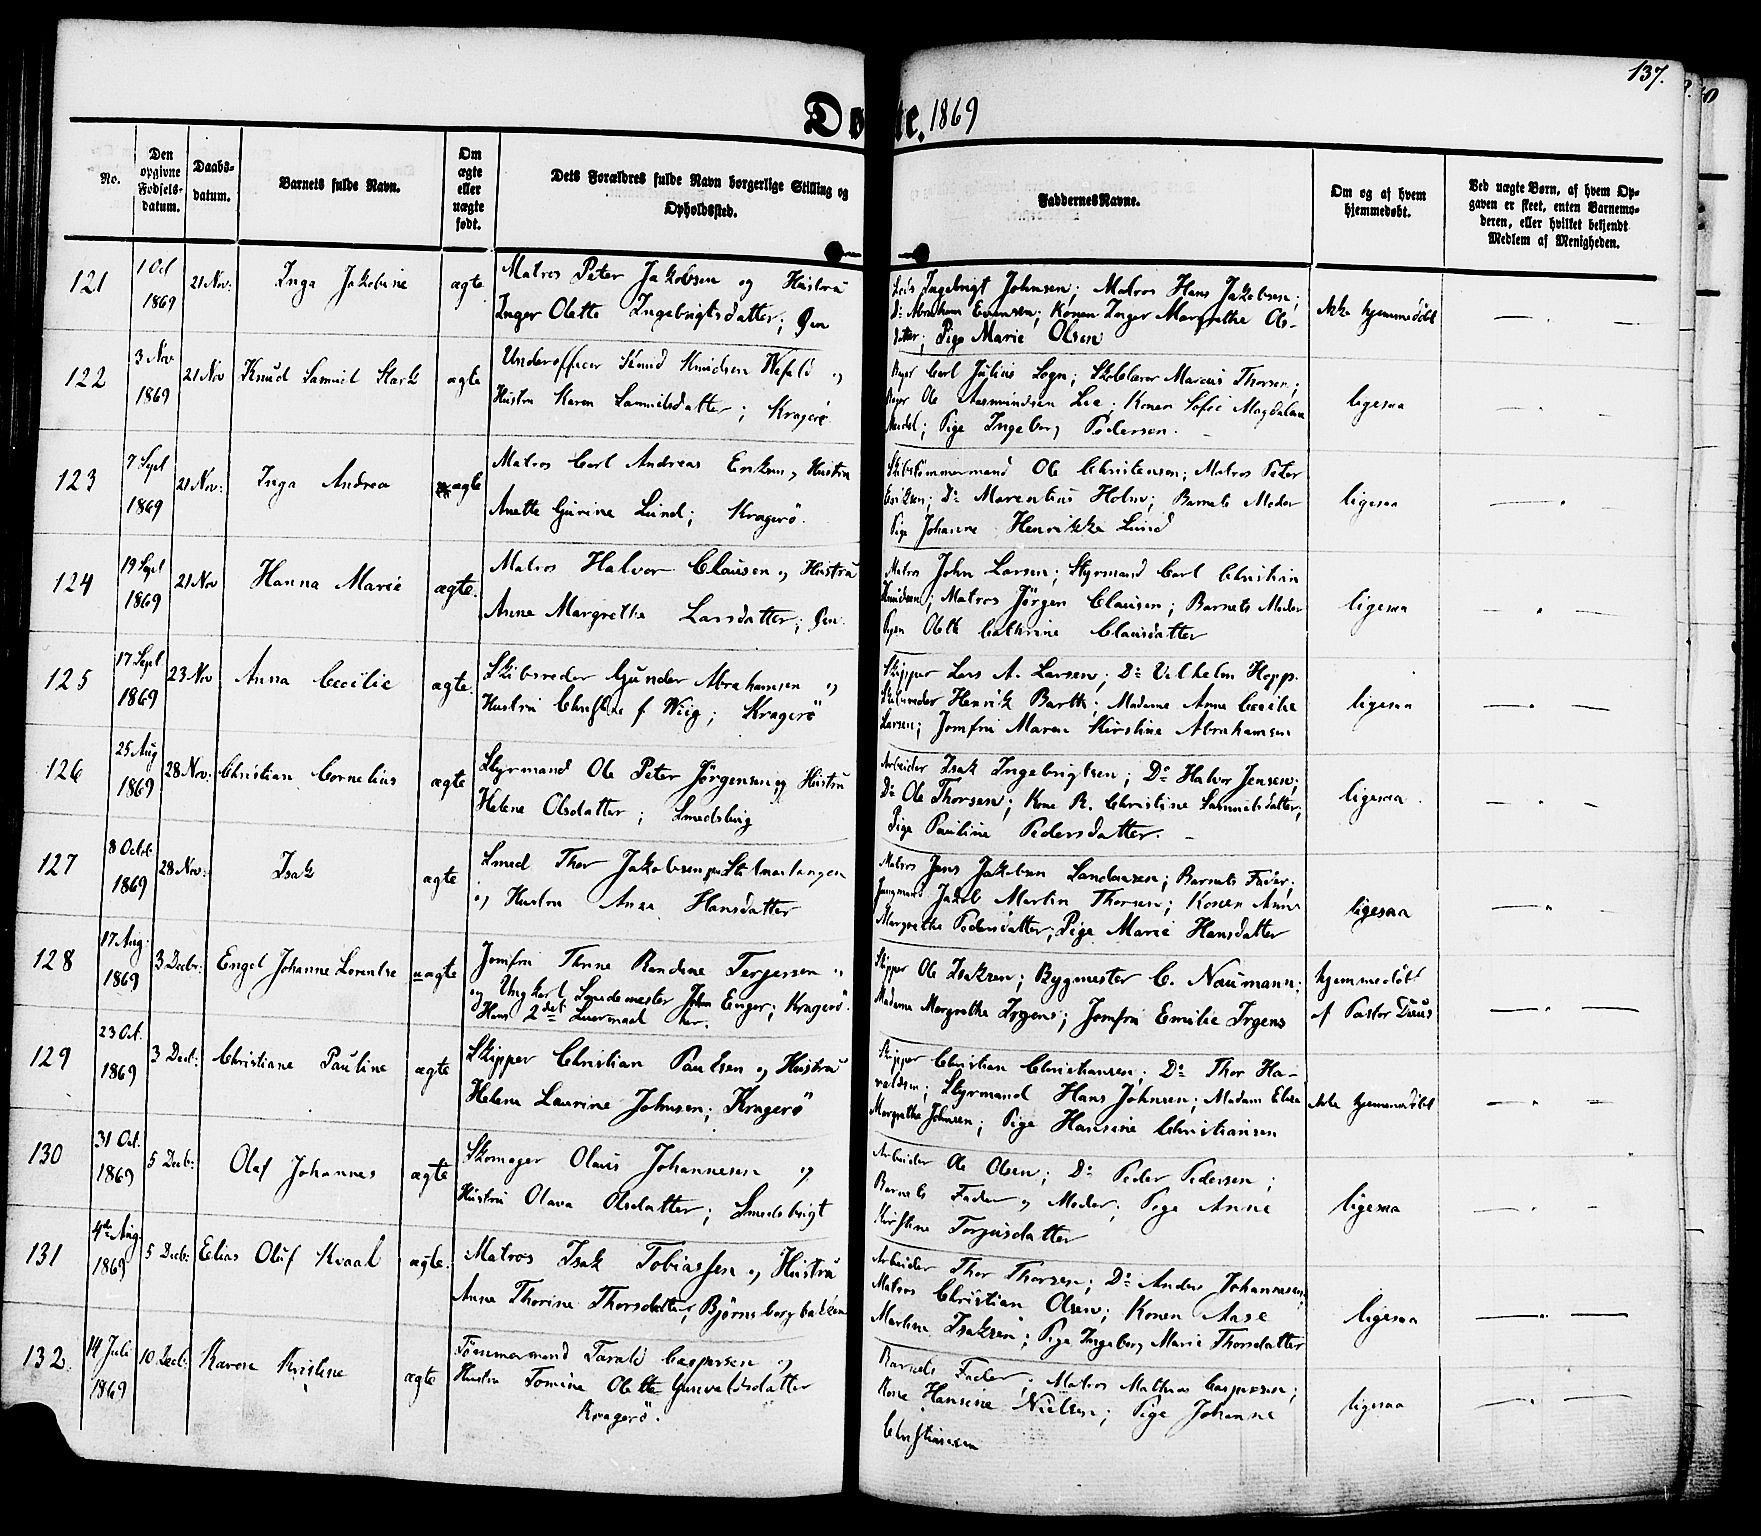 137.
Døbte. 1869
No.
Den opgivne Fødsels-datum.
Daabs-datum.
Barnets fulde Navn.
Om ægte eller uægte født.
Dets Forældres fulde Navn borgerlige Stilling og Opholdssted.
Faddernes Navne.
Om og af hvem hjemmedøbt.
Ved uægte Børn, af hvem Opgaven er skeet, enten Barnemoderen, eller hvilket bekjendt Medlem af Menigheden.
121
1 Oct 1869
21 Nov:
Inga Jakobine
ægte
Matros Peter Jakobsen og Hustru
Inger Olette Ingebrigtsdatter; Øen
Ingebrigt Johnsen; Matros Hans Jakobsen;
Do Abraham Evensen; Konen Inger Margrethe Ols-
datter; Pige Marie Olsen
Ikke hjemmedöbt
122
3 Nov 1869
21 Nov
Knud Samuel Stark
ægte
Underofficer Knudsen og
Hustru Karen Samuelsdatter; Kragerö
Carl Julius Logn; Skolelærer Marcus Thorsen;
Ole Aasmundsen Lie; Konen Sofie Magdalena
Pige Ingeborg Pedersen.
ligesaa
123
7 Sept 1869
21 Nov:
Inga Andrea
ægte
Matros Carl Andreas Eriksen og Hustru
Anette Gurine Lund; Kragerö.
Skibstömmermand Ole Christensen; Matros Peter
Eriksen; Do Marentius Holm; Barnets Moder
Pige Johanne Henrikke Lund
ligesaa
124
19 Sept 1869
21 Nov
Hanna Marie
ægte.
Matros Halvor Clausen og Hustru
Anne Margrethe Larsdatter; Øen.
Matros John Larsen; Styrmand Carl Christian
Knudsen; Matros Jörgen Clausen; Barnets Moder
Pigen Olette Cathrine Clausdatter
ligesaa
125
17 Sept 1869
23 Nov
Anna Cecilie
ægte.
Skibsreder Gunder Abrahamsen og
Hustru Christine f. Wiig; Kragerö
Skipper Lars A. Larsen; Do Vilhelm Hopp.
Skibsreder Henrik Barth; Madame Anne Cecilie
Larsen; Jomfru Maren Kirstine Abrahamsen
ligesaa
126
25 Aug 1869
28 Nov:
Christian Cornelius
ægte
Styrmand Ole Peter Jörgensen og Hustru
Helene Olsdatter; Smedsbug
Arbeider Isak Ingebrigtsen; Do Halvor Jensen;
Do Ole Thorsen; Kone R. Christine Samuelsdatter;
Pige Pauline Pedersdatter.
ligesaa.
127
8 Octob. 1869
28 Nov:
Isak
ægte
Smed Thor Jakobsen paa
og Hustru Anna Hansdatter
Matros Jens Jakobsen Sandaasen; Barnets Fader;
Jungmand Jakob Martin Thorsen; Konen Anne
Margrethe Pedersdatter; Pige Marie Hansdatter
ligesaa
128
17 Aug. 1869
3 Decbr:
Engel Johanne Lorentse
uægte
Jomfru Thrine Randine Terjesen
og Ungkarl Smedemester John Enger; Kragerö.
Hans 2det Leiermaal her.
Skipper Ole Isaksen; Bygmester C. Naumann;
Madame Margrethe Irgens; Jomfru Emilie Irgens
hjemmedöbt
af Pastor
129
23 Oct. 1869
3 Decb:
Christiane Pauline
ægte
Skipper Christian Paulsen og Hustru
Helene Laurine Johnsen; Kragerö
Skipper Christian Christiansen; Do Thor Ha-
valdsen; Styrmand Hans Johnsen; Madam Elisa
Margrethe Johnsen; Pige Hansine Christiansen
Ikke hjemmedöbt
130
31 Oct. 1869
5 Decb:
Olaf Johannes
ægte
Skomager Olaus Johannesen og
Hustru Olava Olsdatter; Smedsbugt
Arbeider Ole Olsen; Do Peder Pedersen;
Barnets Fader og Moder; Pige Anne
Kirstine Torjusdatter
ligesaa
131
4de Aug 1869
5 Decb:
Elias Oluf Kvaal
ægte.
Matros Isak Tobiassen og Hustru
Anne Thorine Thorsdatter; Björnsborgbakken
Arbeider Thor Thorsen; Do Anders Johannesen;
Matros Christian Olsen; Konen Aase
Marthea Isaksen; Pige Ingeborg Marie Thorsdatter
ligesaa
132.
14 Juli 1869
10 Decb:
Karen Kristine
ægte
Tömmermand Tarald Caspersen og
Hustru Tomine Olette Gunvaldsdatter
Kragerö.
Barnets Fader; Matros Mathias Caspersen;
Kone Hansine Nielsen; Pige Johanne
Christiansen
ligesaa